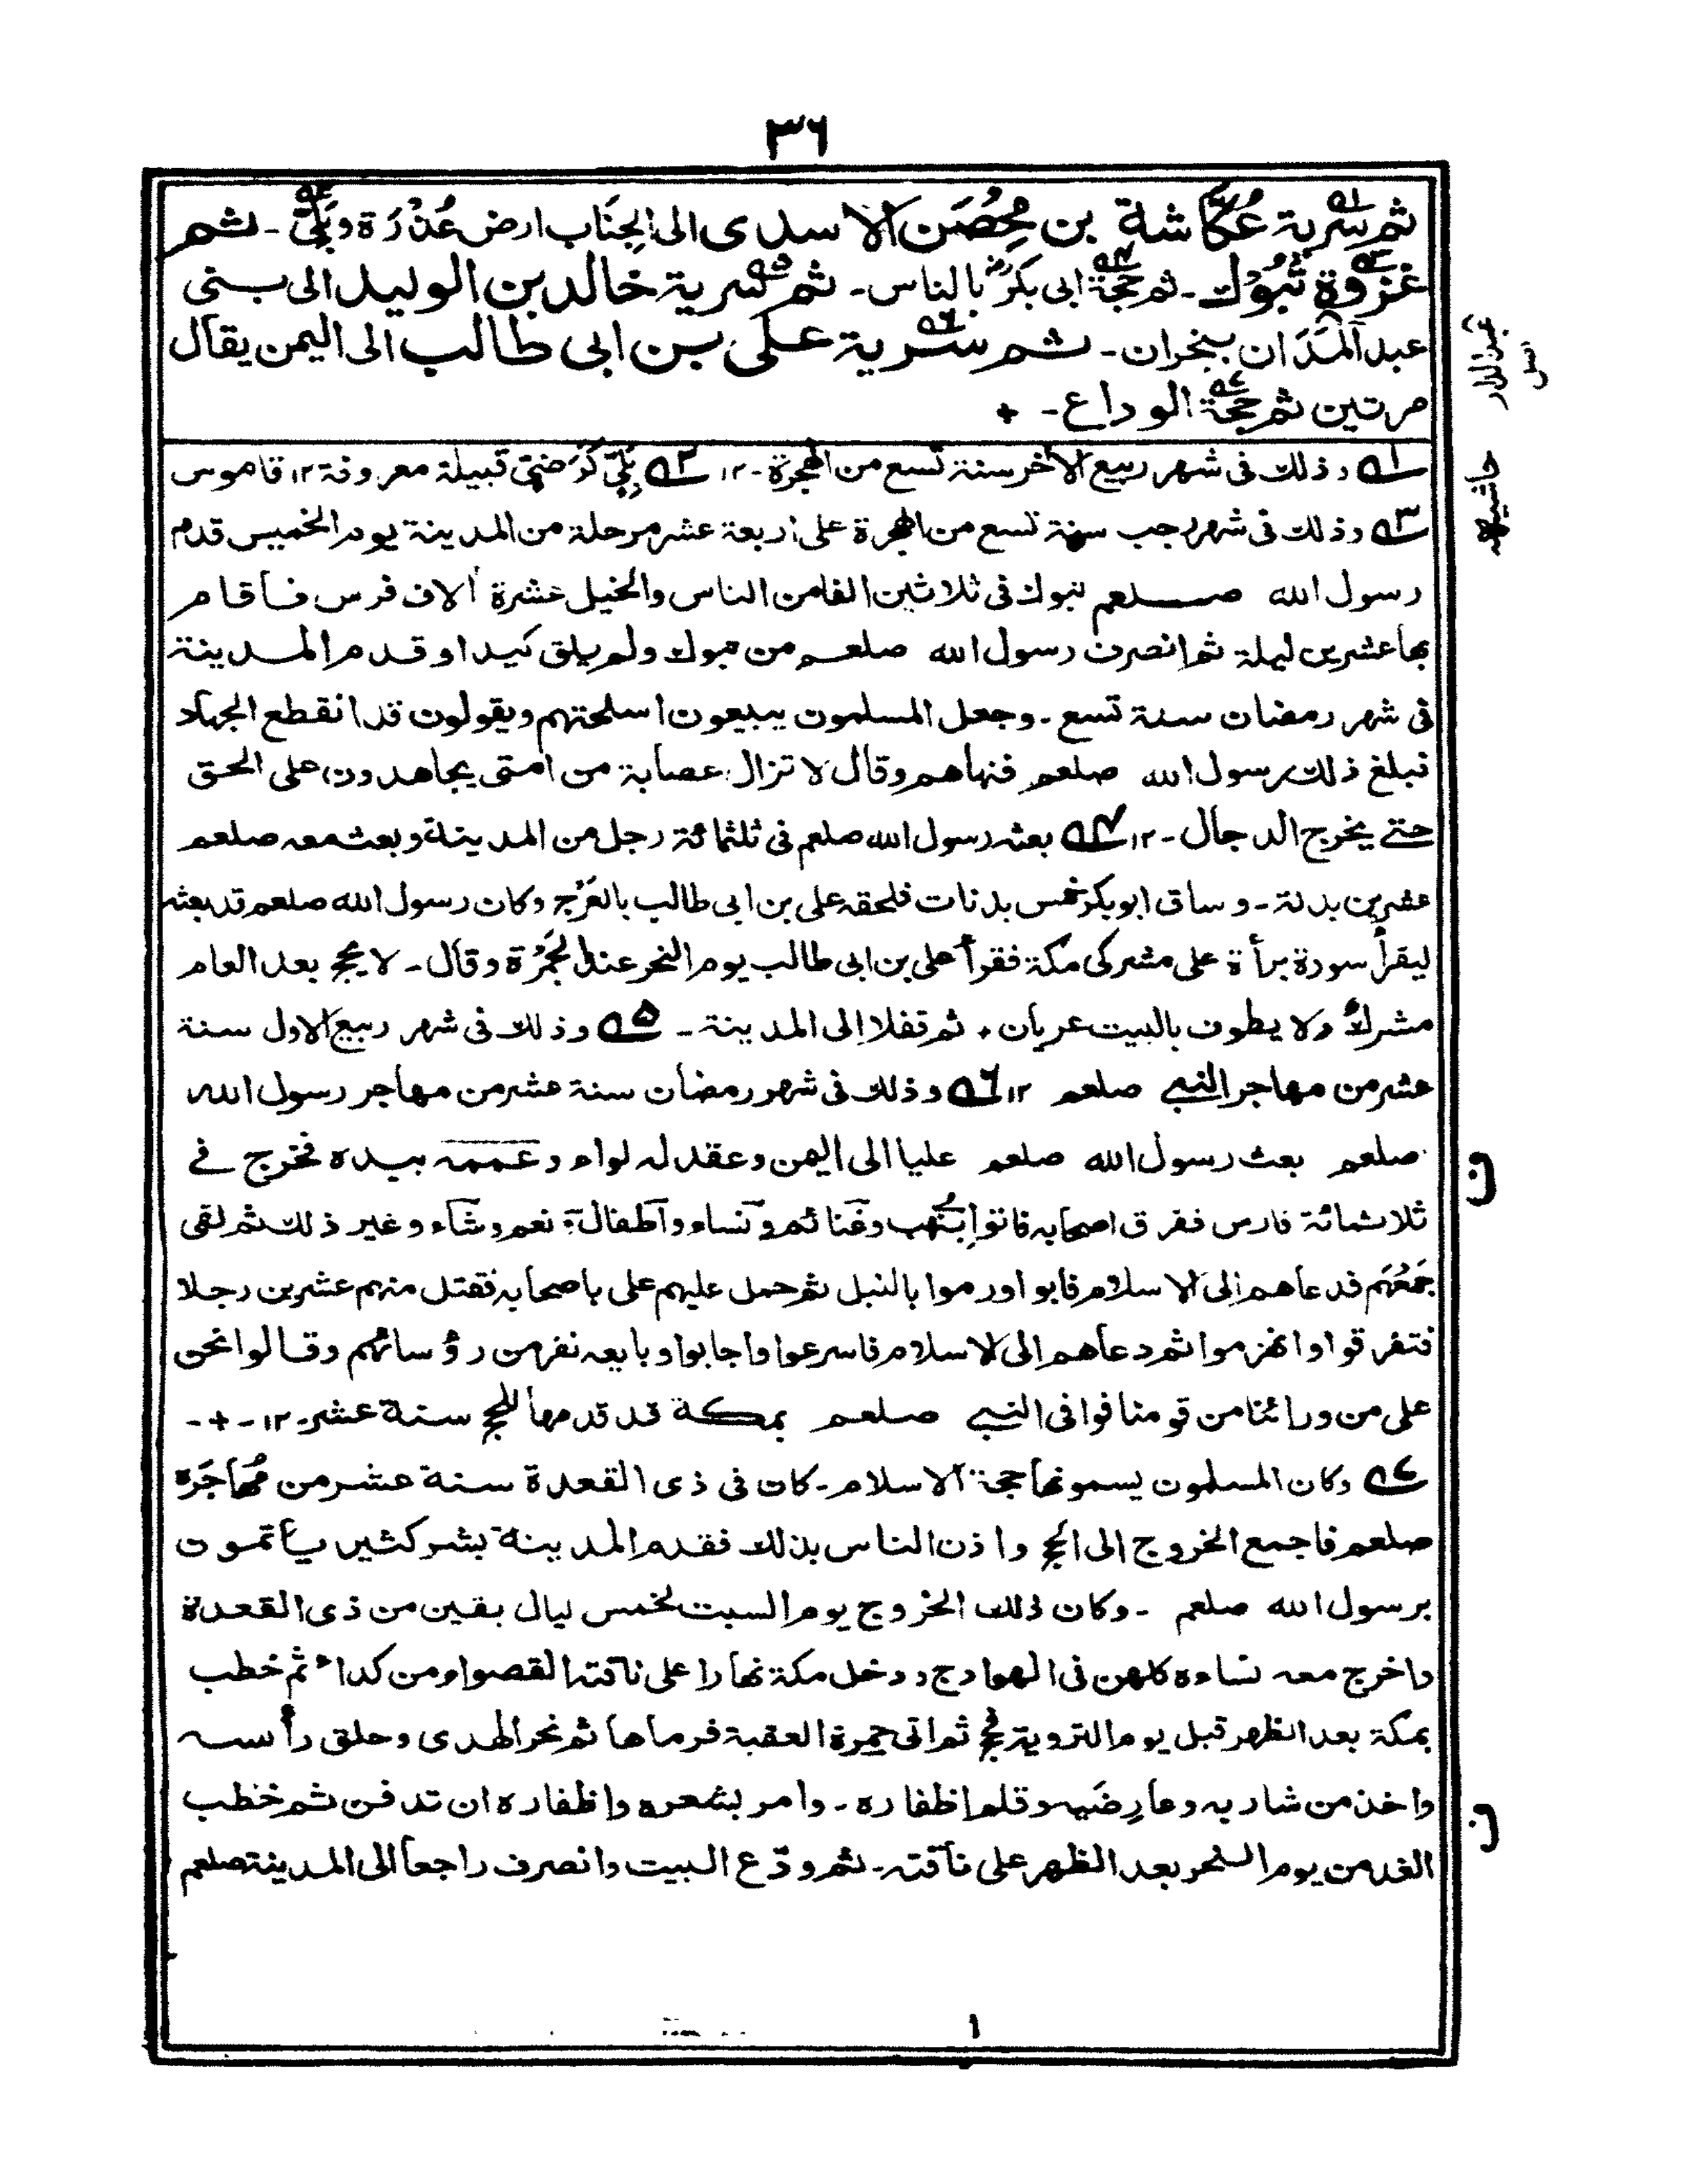 ٣٦
ثم سرية عُكَّاشة بن مِحُصَن الاسدى الى الجِنَاب ارض عُذْرَة وبَلِيّ ـ ثم
غزوة تَبُوْك ـ ثم حَجَّة ابى بكرؓ بالناس ـ ثم سرية خالد بن الوليد الى بنى
عبد المَدَان بنجران ـ ثم سرية على بن ابى طالب الى اليمن يقال
مرتين ثم حجة الوداع ـ +
عبد الدار
حاشيه
١ه وذلك فى شهر ربيع الاخر سنة تسع من الهجرة ـ ١٢ ٢ه بَلِيّ كَرَضِيّ قبيلة معروفة ١٢ قاموس
٣ه وذلك فى شهر رجب سنة تسع من الهجرة على اربعة عشر مرحلة من المدينة يوم الخميس قدم
رسول الله صلعم تبوك فى ثلاثين الفا من الناس والخيل عشرة الاف فرس فاقام
بها عشرين ليلة ثم انصرف رسول الله صلعم من تبوك ولم يلق كيدا وقدم المدينة
فى شهر رمضان سنة تسع ـ وجعل المسلمون يبيعون اسلحتهم ويقولون قد انقطع الجهاد
فبلغ ذلك رسول الله صلعم فنهاهم وقال لا تزال عصابة من امتى يجاهدون على الحق
حتے يخرج الدجال ـ ١٢ ٤ه بعثه رسول الله صلعم فى ثلثمائة رجل من المدينة وبعث معه صلعم
عشرين بدنة ـ وساق ابوبكر خمس بدنات فلحقه على بن ابى طالب بالعَرْج وكان رسول الله صلعم قد بعثه
ليقرأ سورة برأة على مشركى مكة فقرأ على بن ابى طالب يوم النحر عند الجَمْرَة وقال ـ لا يحج بعد العام
مشرك ولا يطوف بالبيت عريان ٠ ثم قفلا الى المدينة ـ ٥ه وذلك فى شهر ربيع الاول سنة
عشر من مهاجر النبے صلعم ١٢ ٦ه وذلك فى شهر رمضان سنة عشر من مهاجر رسول الله
صلعم بعث رسول الله صلعم عليا الى اليمن وعقد له لواء وعممه بيده فخرج فے
ن
ثلاثمائة فارس ففرق اصحابه فاتوا بِنَهْب وغنائم ونساء واطفال نعم وشاء وغير ذلك ثم لقى
جَمَعَهُم فدعاهم الى الاسلام فابوا ورموا بالنبل ثم حمل عليهم على باصحابه فقتل منهم عشرين رجلا
فتفرقوا وانهزموا ثم دعاهم الى الاسلام فاسرعوا واجابوا وبايعه نفر من رؤسائهم وقالوا نحن
على من ورائنا من قومنا فوافى النبے صلعم بمكة قد قدمها للحج سنة عشر ـ ١٢ ـ + ـ
٧ه وكان المسلمون يسمونها حجة الاسلام ـ كان فى ذى القعدة سنة عشر من مُهاجَرة
صلعم فاجمع الخروج الى الحج واذن الناس بذلك فقدم المدينة بشر كثير ياتمون
برسول الله صلعم ـ وكان ذلك الخروج يوم السبت لخمس ليال بقين من ذى القعدة
واخرج معه نساءه كلهن فى الهوادج ودخل مكة نهارا على ناقته القصواء من كداء ثم خطب
بمكة بعد الظهر قبل يوم التروية بيوم ثم اتى جمرة العقبة فرماها ثم نحر الهدى وحلق رأسه
واخذ من شاربه وعارِضَيه وقلم اظفاره ـ وامر بشعره واظفاره ان تدفن ثم خطب
ن
الغد من يوم النحر بعد الظهر على ناقته ـ ثم ودّع البيت وانصرف راجعا الى المدينة صلعم